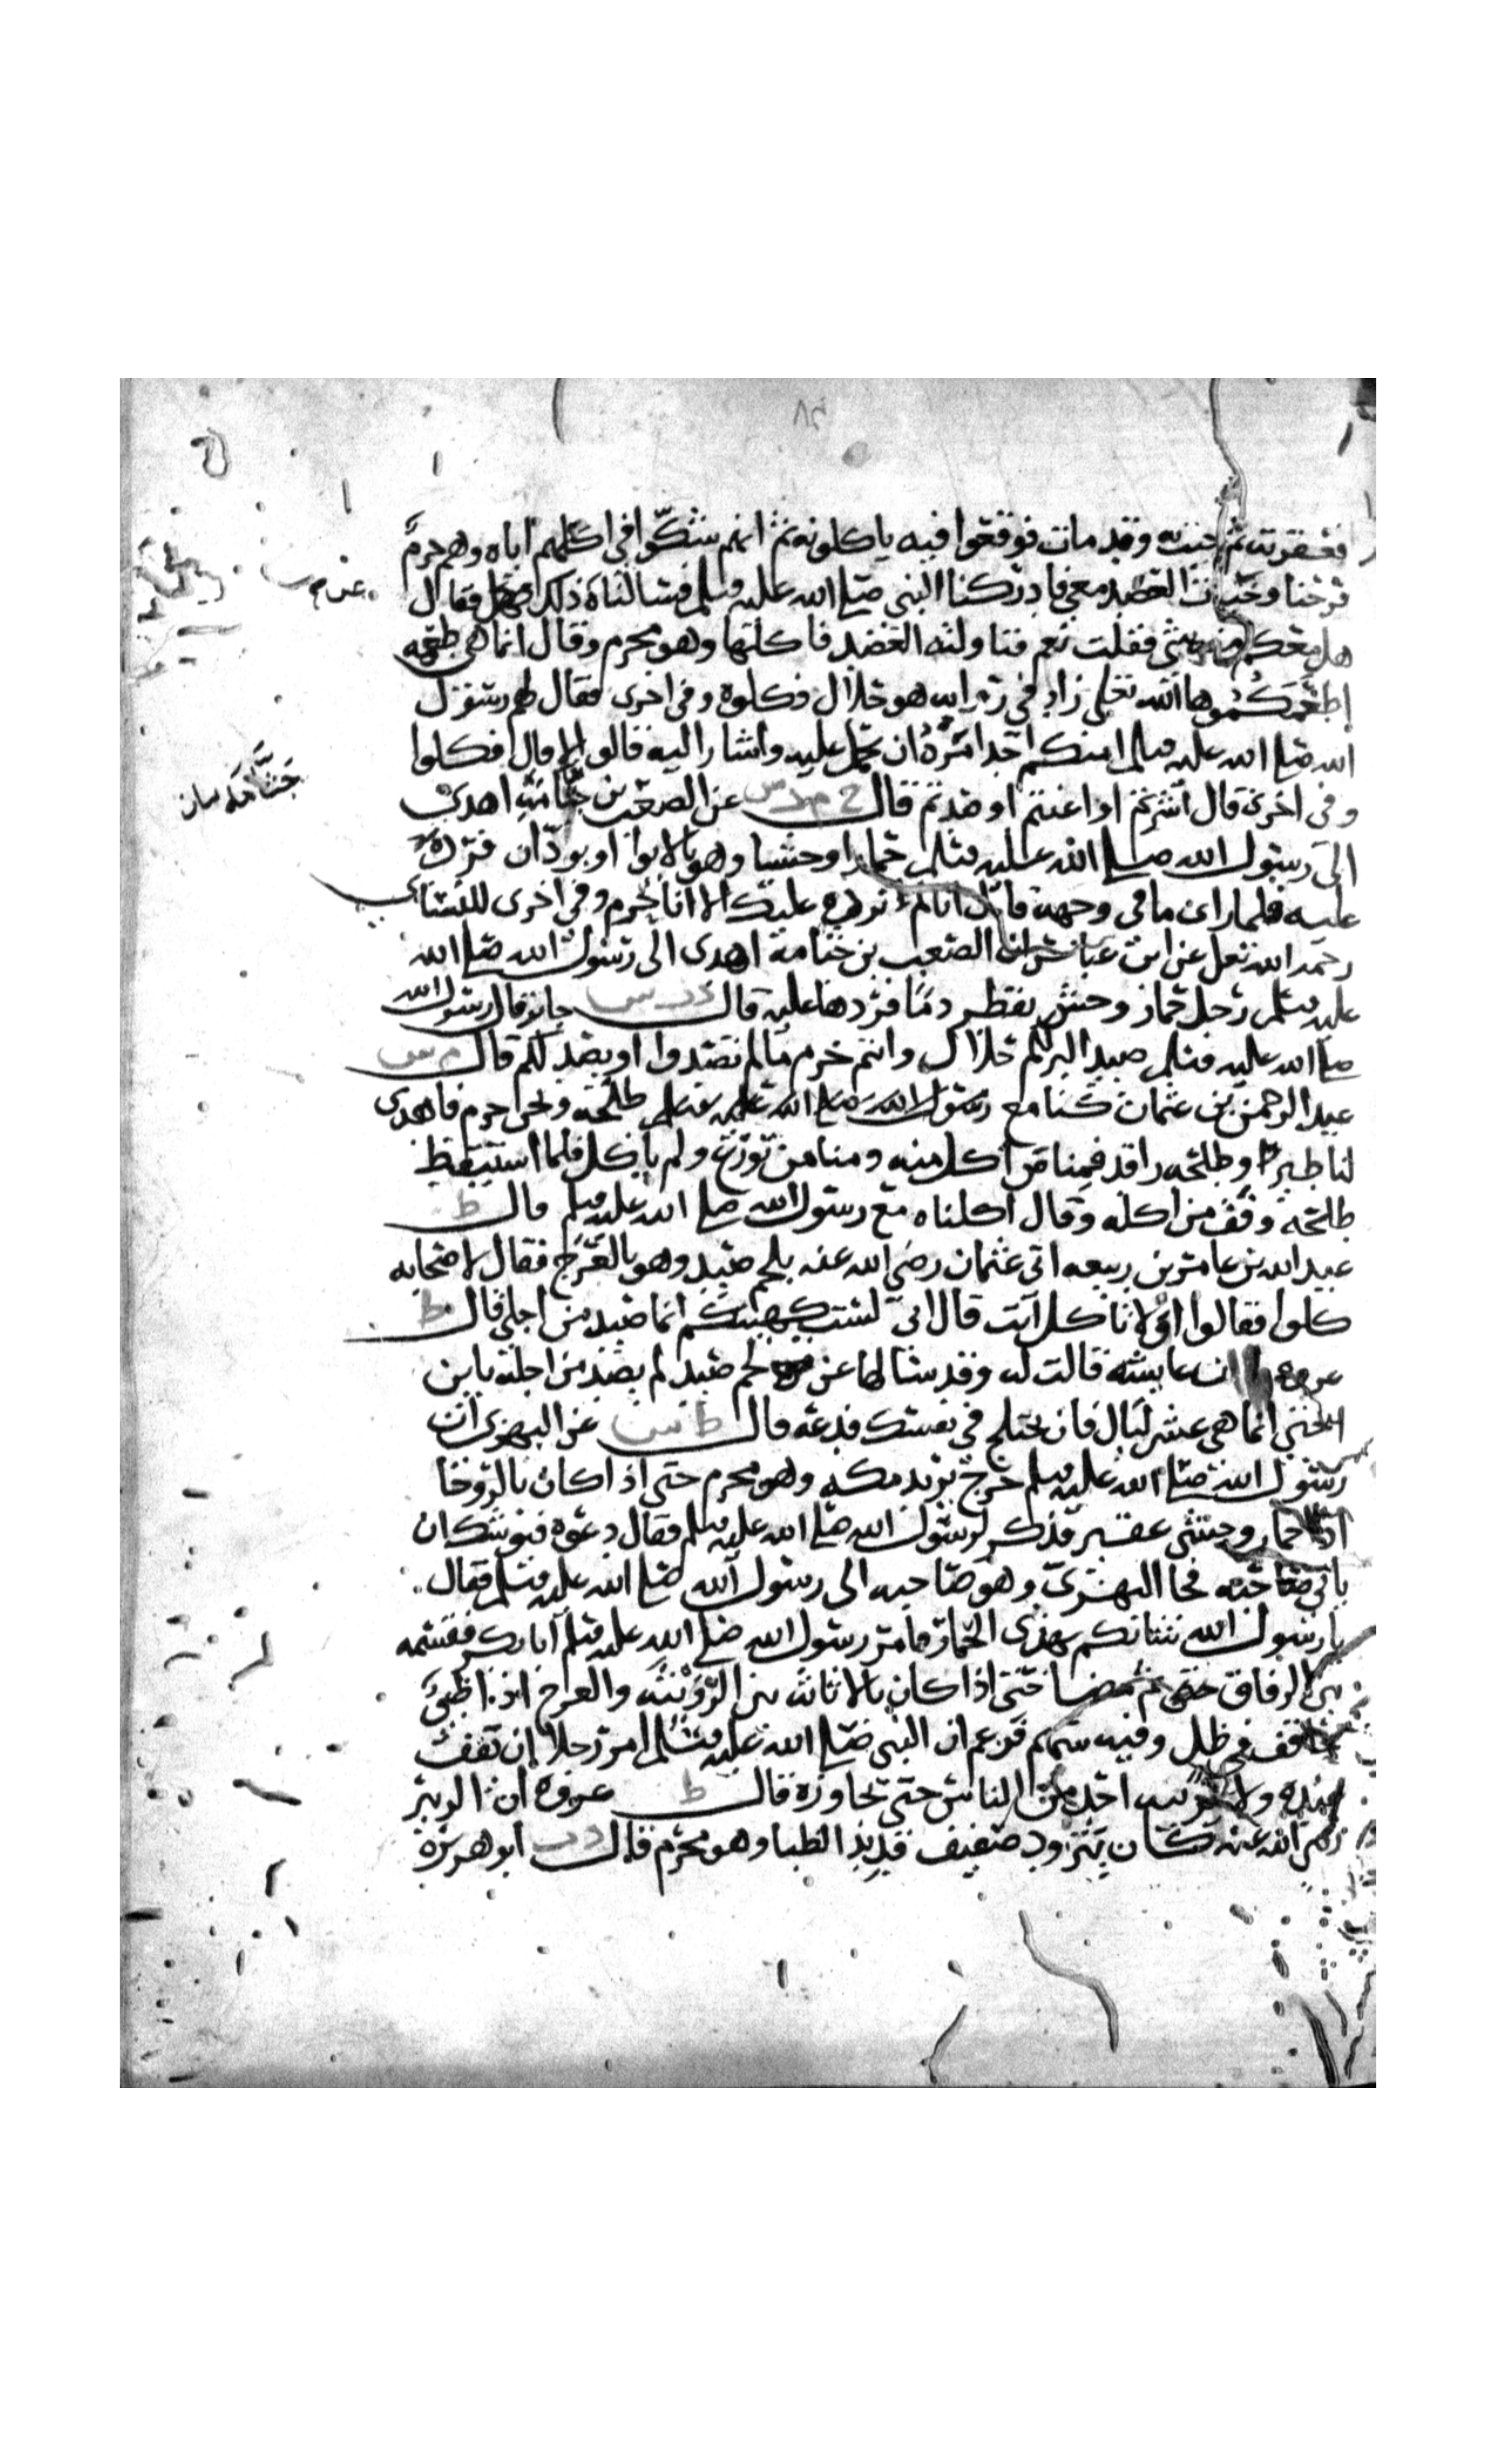 ٨٢
فعقرته ثم جئت به وقد مات فوقعوا فيه ياكلونه ثم انهم شكّوا في اكلهم اياه وهم حرم
فرحنا وخبأت العضد معي فادركنا النبي صلى الله عليه وسلم فسالناه ذلك فقال
هل معكم منه شي فقلت نعم فناولته العضد فاكلها وهو محرم وقال انما هي طعمه
اطعمكموها الله تعلى زاد في روايه هو حلال فكلوه وفي اخرى فقال لهم رسول
الله صلى الله عليه وسلم امنكم احد امره ان يحمل عليه واشار اليه قالوا لا قال فكلوا
وفي اخرى قال اشرتم او اعنتم او صدتم قال خ م د س عن الصعب بن جثامة اهدى
الى رسول الله صلى الله عليه وسلم حمارا وحشيا وهو بالابوا او بودّان فرده
عليه فلما راى ما في وجهه قال انا لم نرده عليك الا انا حرم وفي اخرى للنسائي
رحمه الله تعلى عن ابن عباس ان الصعب بن جثامة اهدى الى رسول الله صلى الله
عليه وسلم رجل حمار وحش يقطر دما فردها عليه قال د ت س جابر قال رسول الله
صلى الله عليه وسلم صيد البر لكم حلال وانتم حرم ما لم تصيدوا او يصد لكم قال م س
عبد الرحمن بن عثمان كنا مع طلحه ونحن حرم فاهدي
لنا طير وطلحه راقد فمنا من اكل منه ومنا من تورع ولم ياكل فلما استيقظ
طلحه وفق من اكله وقال اكلناه مع رسول الله صلى الله عليه وسلم قال ط
عبد الله بن عامر بن ربيعه اتي عثمان رضي الله عنه بلحم صيد وهو بالعرج فقال لاصحابه
كلوا فقالوا اولا تاكل انت قال اني لست كهيئتكم انما صيد من اجلي قال ط
عروه ان عايشه قالت له وقد سالها عن لحم صيد لم يصد من اجله يابن
اختي انما هي عشر ليال فان تخلج في نفسك فدعه قال ط س عن البهزي ان
رسول الله صلى الله عليه وسلم خرج يريد مكه وهو محرم حتى اذا كان بالروحا
اذا حمار وحشي عقير فذكر لرسول الله صلى الله عليه وسلم فقال دعوه فيوشك ان
ياتي صاحبه فجا البهزيّ وهو صاحبه الى رسول الله صلى الله عليه وسلم فقال
يا رسول الله شانكم بهذى الحمار فامر رسول الله صلى الله عليه وسلم ابا بكر فقسمه
بين الرفاق ثم مضا حتى اذا كان بالاثايه بين الرويثه والعرج اذا ظبي
حاقف في ظل وفيه سهم فزعم ان النبي صلى الله عليه وسلم امر رجلا ان يقف
عنده ولا يريبه احد من الناس حتى تجاوزه قال ط عروه ان الزبير
رضي الله عنه كان يتزود صفيف قديد الظبا وهو محرم قال د ت ابو هريره
جثّامَه